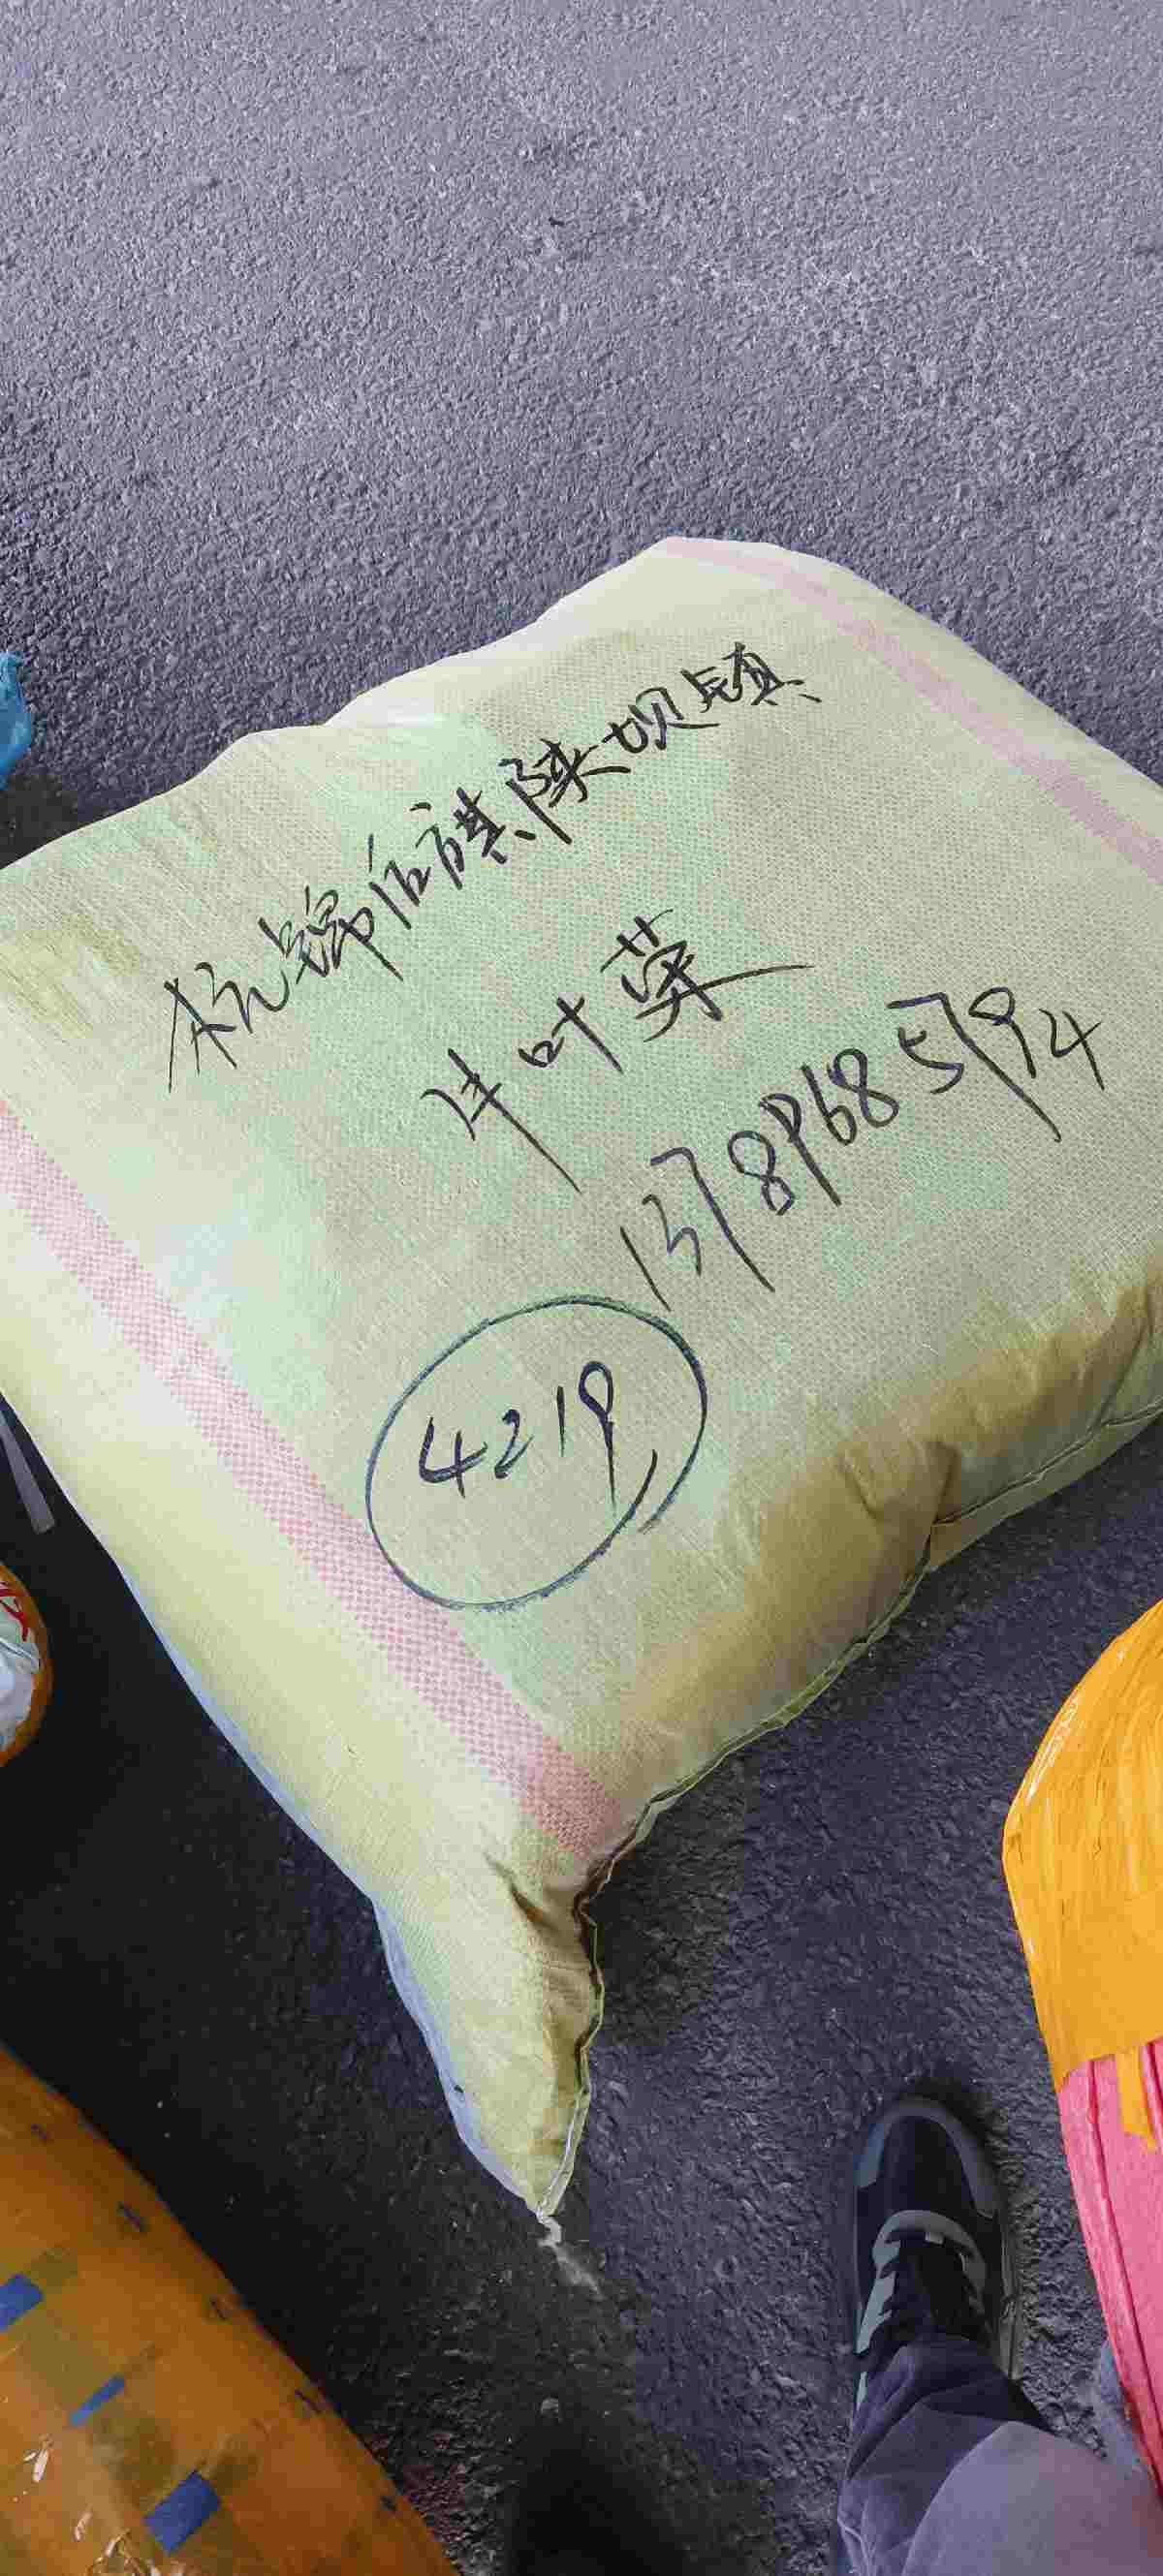 杭锦后旗陕坝镇
牛叶英
13789685794
4219